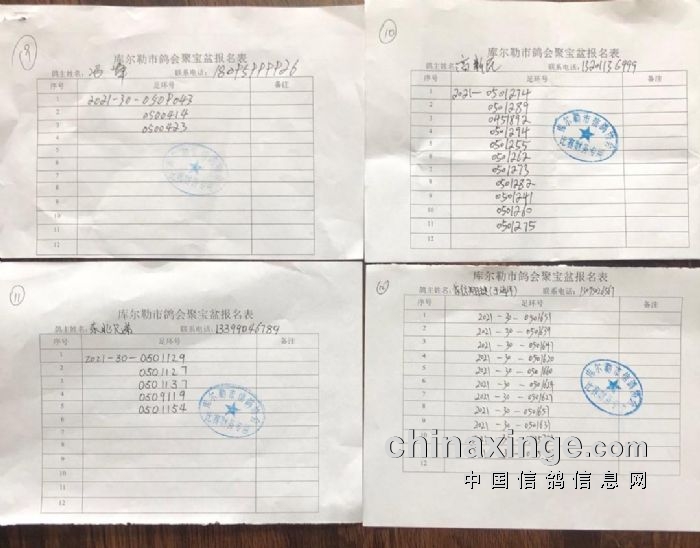 9
库尔勒市鸽会聚宝盆报名表
鸽主姓名: 联系电话:
序号 足环号 备注
1 2021-30-0508043
2 0500414
3 0500423
4
5
6
7
8
9
10
11
12
10
库尔勒市鸽会聚宝盆报名表
鸽主姓名: 联系电话: 13201136999
序号 足环号 备注
1 2021-0501274
2 0501289
3 0451892
4 0501294
5 0501255
6 0501262
7 0501273
8 0501282
9 0501241
10 0501260
11 0501275
12
库尔勒市信鸽协会
比赛财务专用
11
库尔勒市鸽会聚宝盆报名表
鸽主姓名: 东北兄弟 联系电话: 13399046789
序号 足环号 备注
1 2021-30-0501129
2 0501127
3 0501137
4 0509119
5 0501154
6
7
8
9
10
11
12
库尔勒市信鸽协会
比赛财务专用
库尔勒市鸽会聚宝盆报名表
鸽主姓名: 联系电话:
序号 足环号 备注
1 2021-30-0501651
2 2021-30-0501659
3 2021-30-0501647
4 2021-30-0501620
5 2021-30-0501660
6 2021-30-0501624
7 2021-30-0501627
8 2021-30-0501657
9 2021-30-0501631
12
库尔勒市信鸽协会
比赛财务专用
chinaxinge.com
中国信鸽信息网